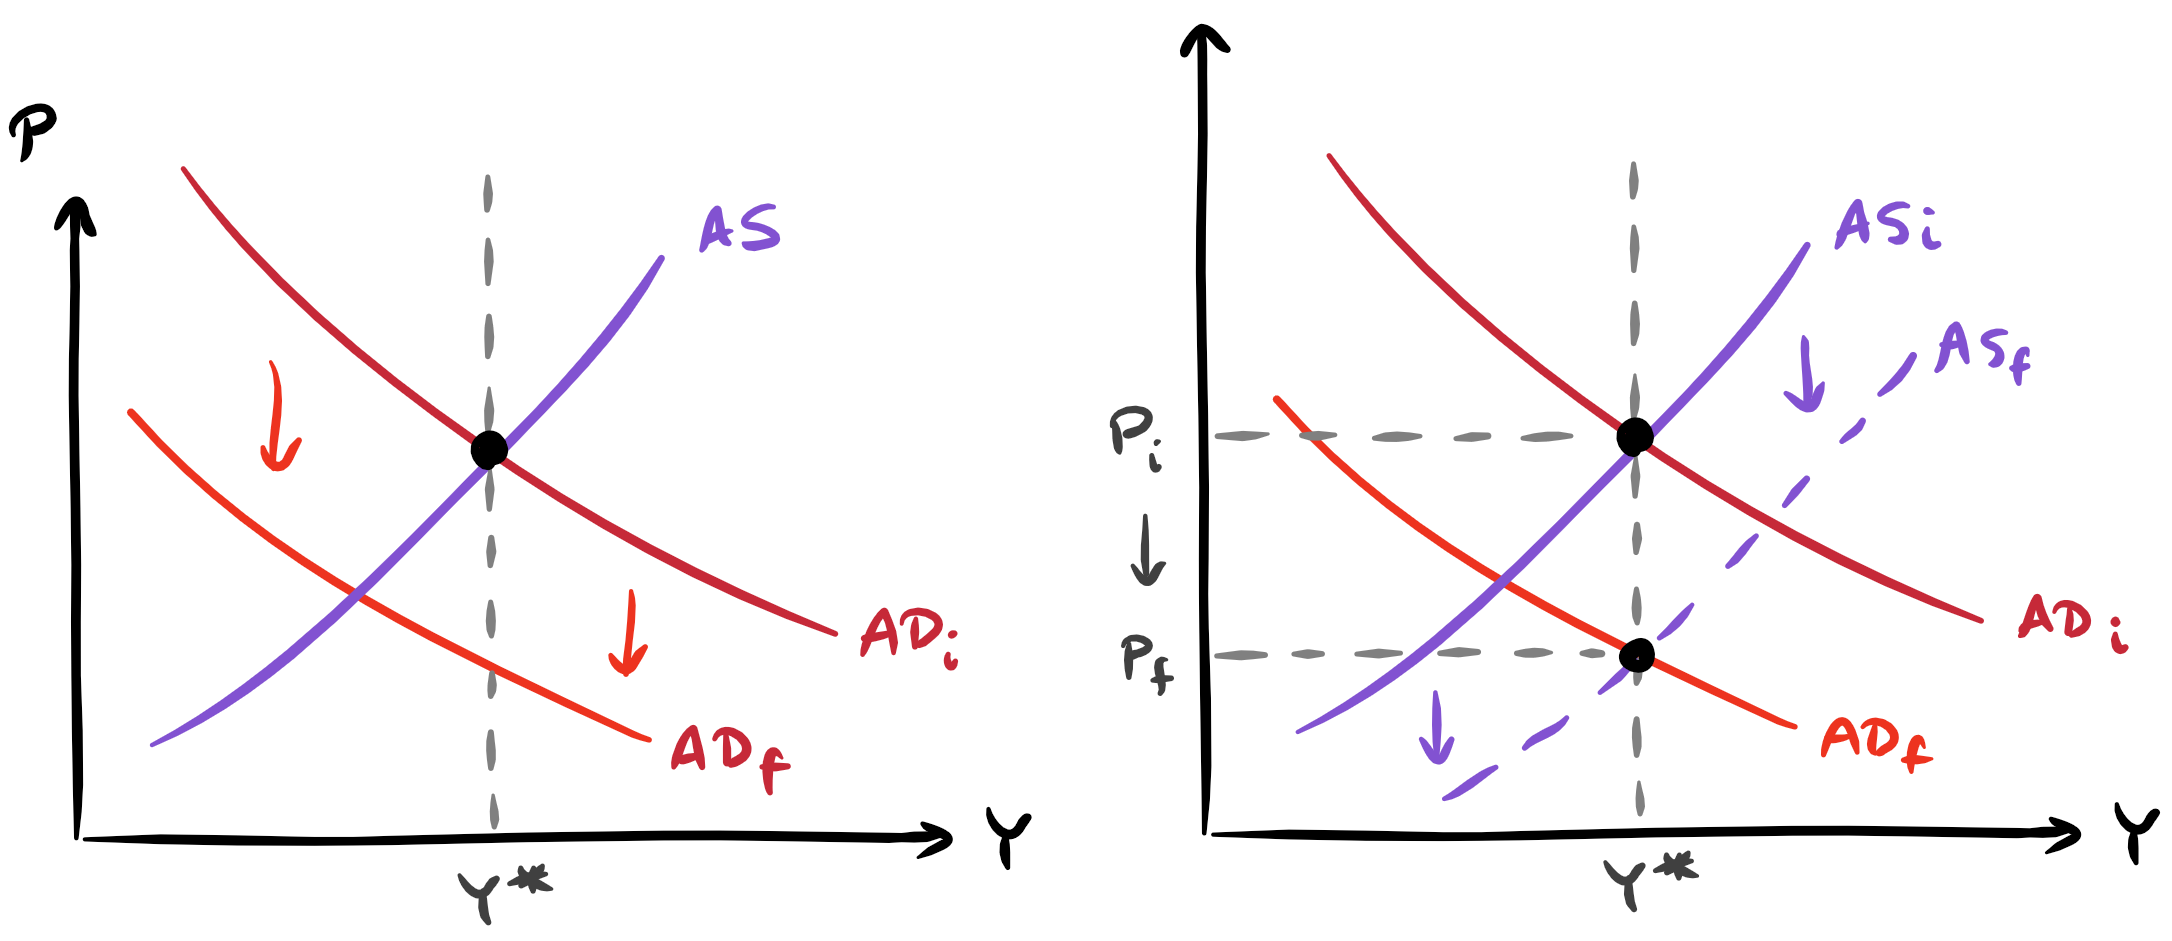 P
AS
AD i
AD f
Y
Y*
AS i
AS f
P i
P f
AD i
AD f
Y
Y*